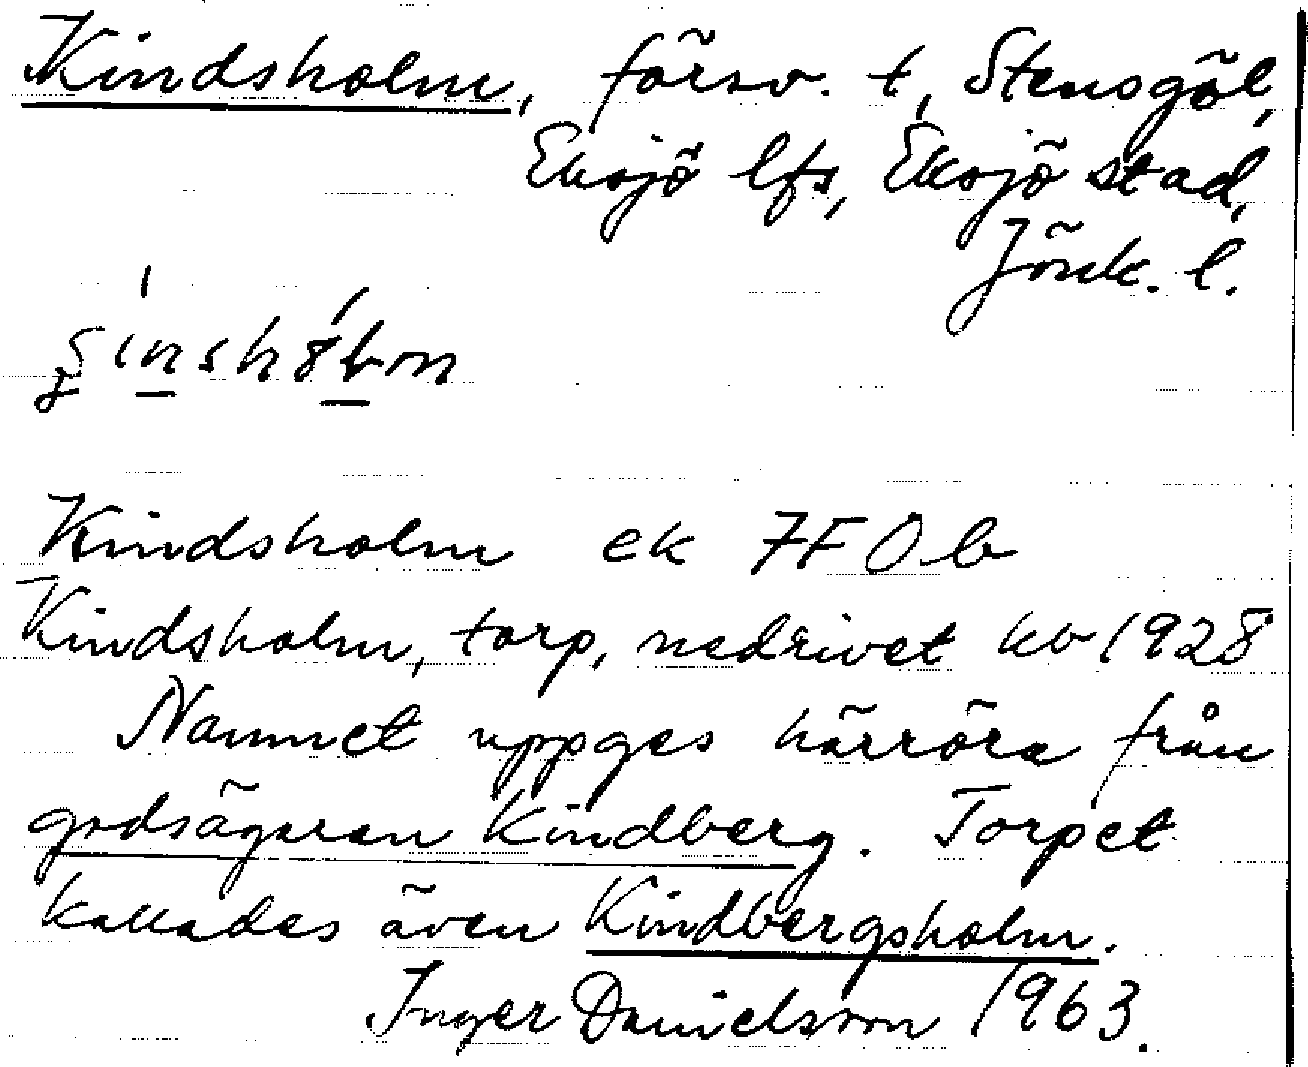 Kindsholm, försv. t, Stensgöl,
Eksjö lfs, Eksjö stad,
Jönk. l.
Kindsholm ek 7F0b
Kindsholm, torp, nedrivet kb 1928
Namnet uppges härröra från
godsägaren Kindberg. Torpet
kallades även Kindbergsholm.
Inger Danielsson 1963.